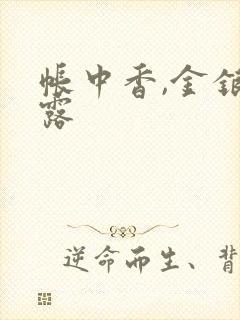 帳中香,金銀
露
逆命而生、背